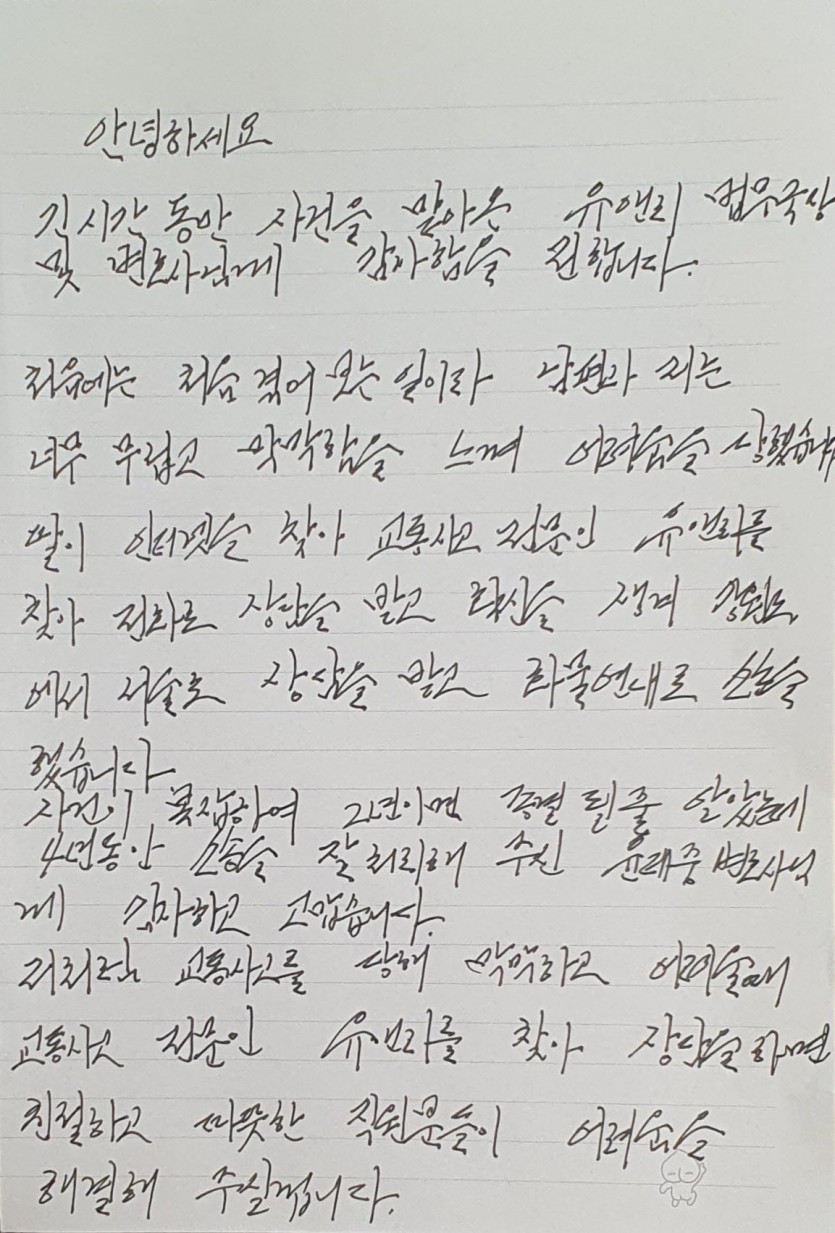 안녕하세요
긴 시간 동안 사건을 맡아온 유앤리 법무국장
및 변호사님께 감사함을 전합니다.
처음에는 처음 겪어 보는 일이라 남편과 저는
너무 무렵고 막막함을 느껴 어려움을 당했습니다
딸이 인터넷을 찾아 교통사고 전문인 유앤리를
찾아 전화로 상담을 받고 확신을 생겨 강원도
에서 서울로 상담을 받고 소송을
했습니다
사건이 복잡하여 2년이면 종결 될줄 알았는데
4년동안 소송을 잘 처리해 주신 윤태중 변호사님
께 감사하고 고맙습니다.
저처럼 교통사고를 당해 막막하고 어려울때
교통사고 전문인 유앤리를 찾아 상담을 하면
친절하고 따뜻한 직원분들이 어려움을
해결해 주실겁니다.